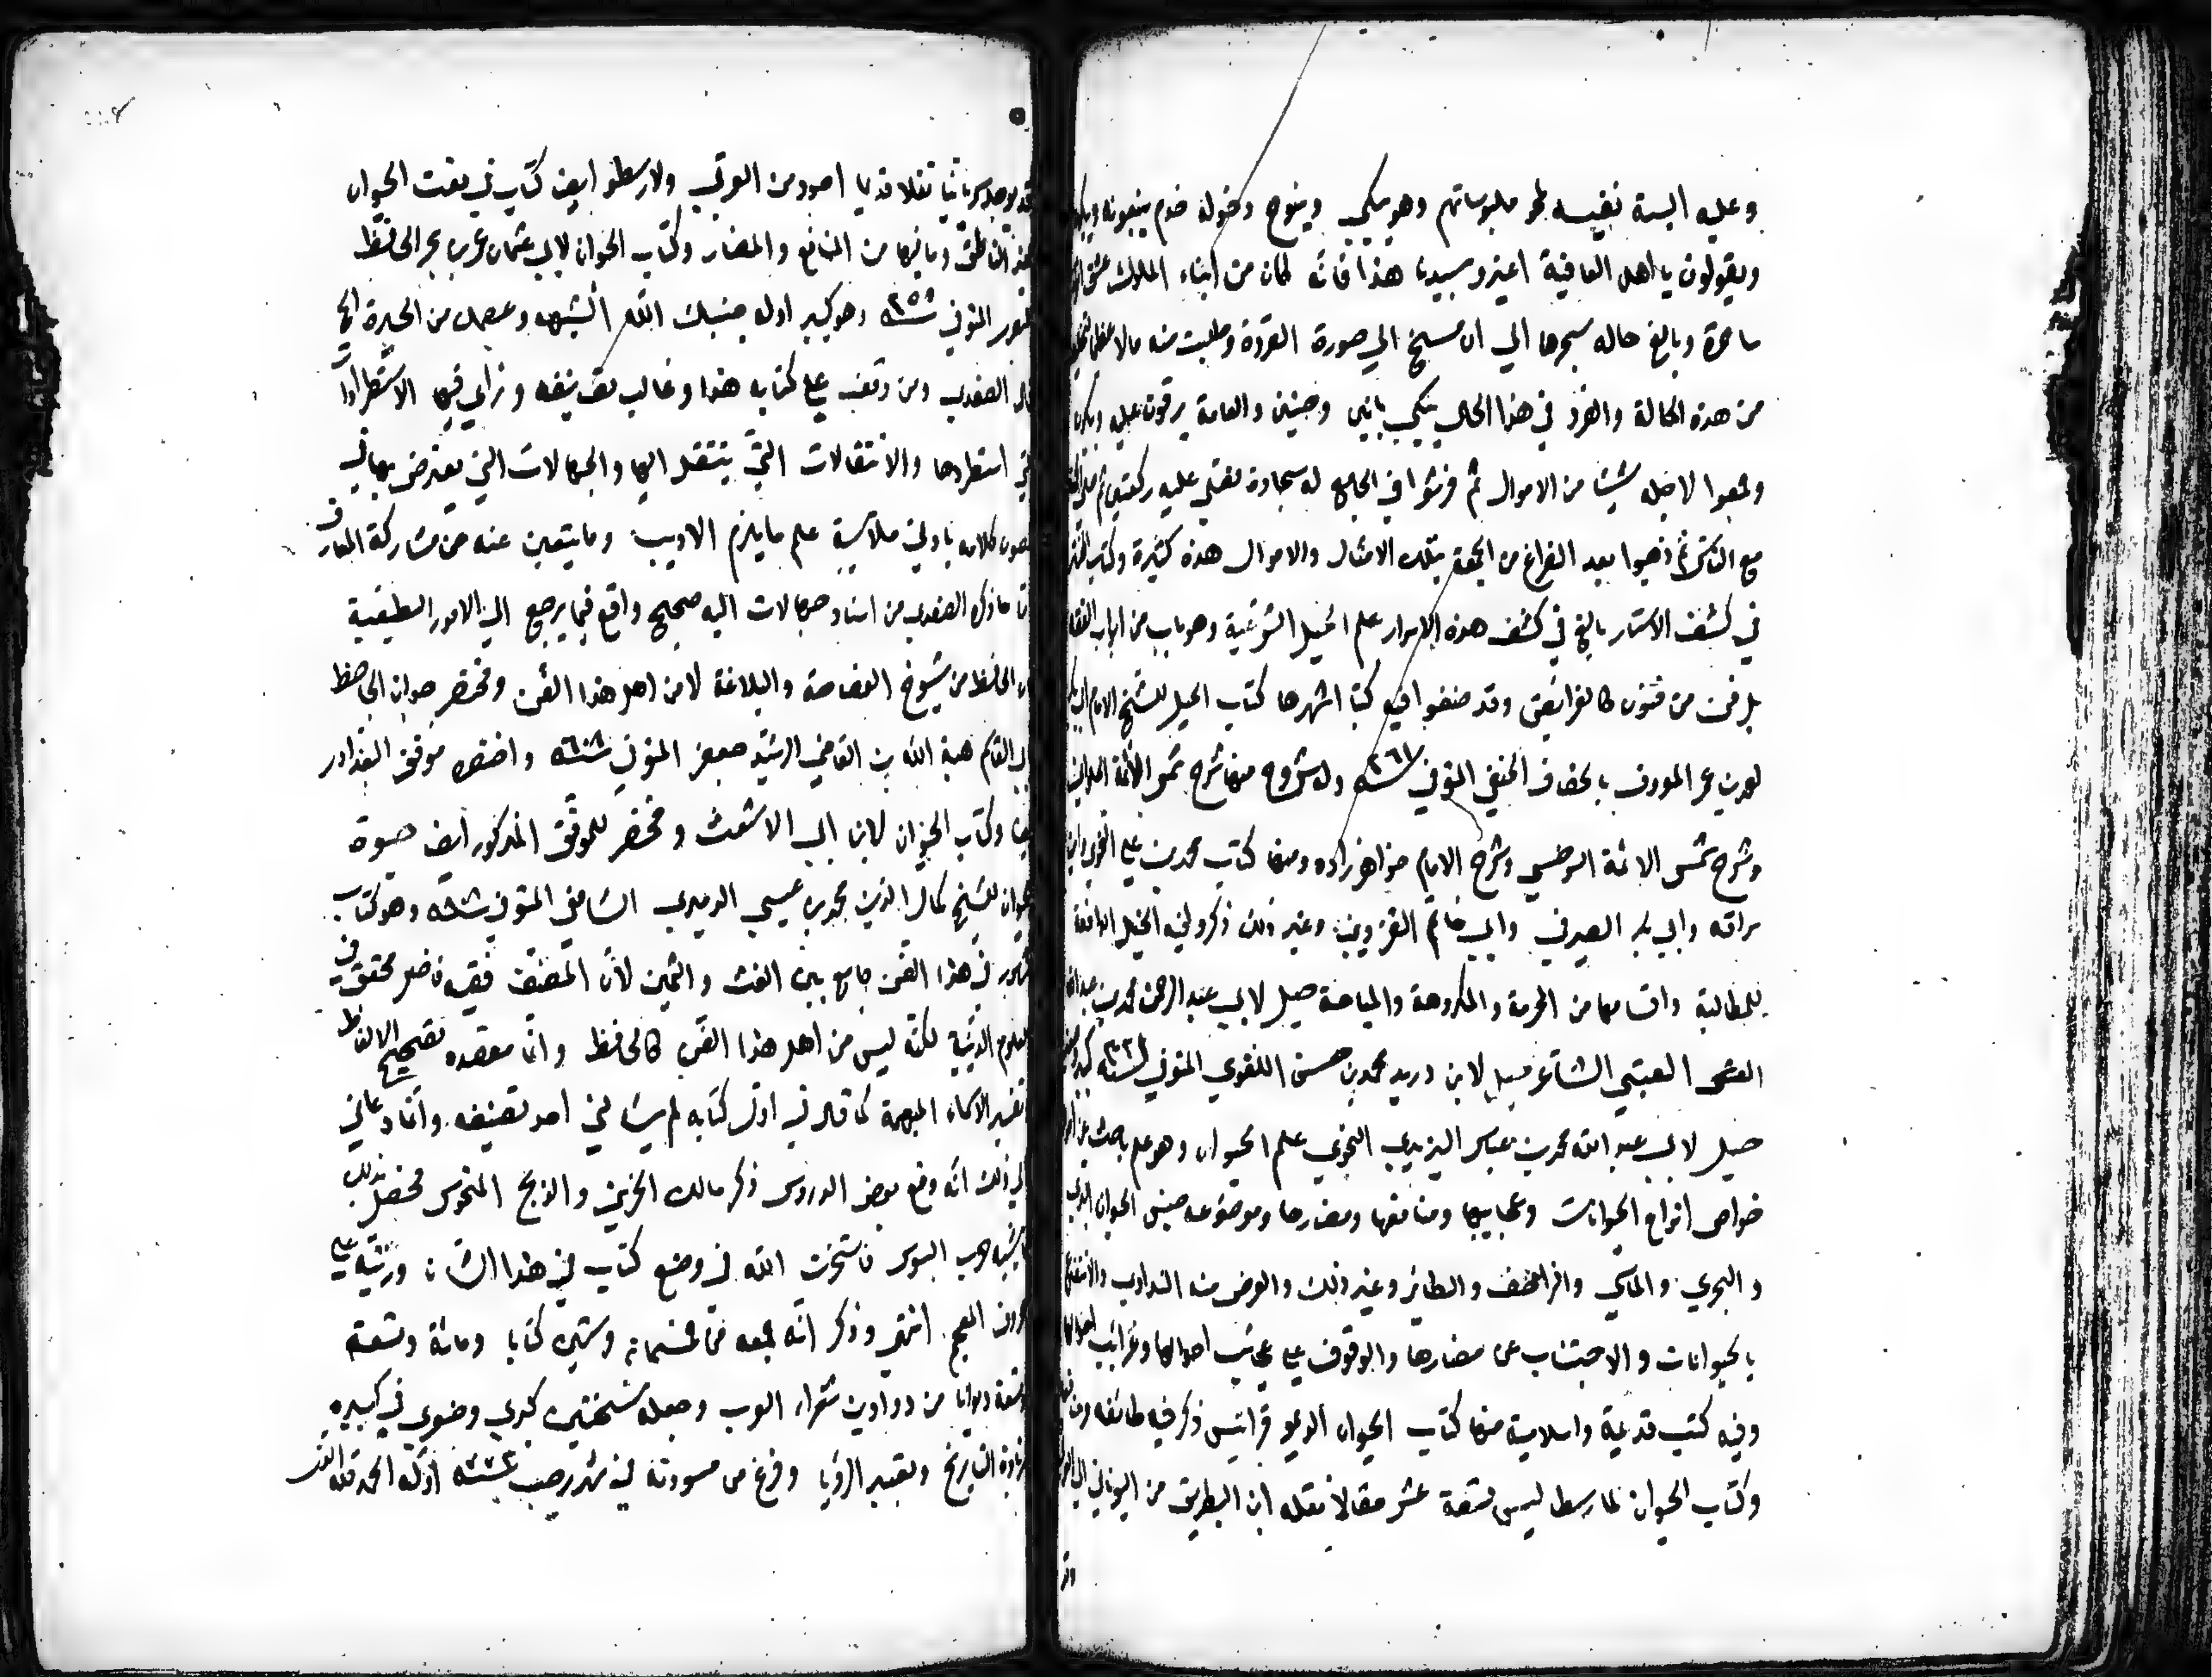 وعليه البسة نفيسه نحو ملبوساتهم وهو يبكي وينوح وحوله خدم يتبعونه
ويقولون يا اهل العافية اعتبروا بسيدنا هذا فانه كان من ابناء الملوك عشق
ساحرة وبالغ حاله بسحرها الي ان مسخ الي صورة القردة وطلبت منه مالا عظيما
من هذه الحالة والقرد في هذا الحال يبكي بانين وحنين والعامة يرقون عليه
وجمعوا لاجله شيئا من الاموال ثم فرشوا في الجامع له سجادة فصلي عليه ركعتين ثم
مع الناس ثم ذهبوا بعد الفراغ من الجمعة بتلك الامثال والاموال هذه كثيرة وكتاب
في كشف الاستار بالغ في كشف هذه الاسرار علم الحيل الشرعية وهو باب من ابواب الفقه
بل فن من فنونه كالفرائض وقد صنفوا فيه كتبا اشهرها كتاب الحيل للشيخ الامام ابي بكر
احمد بن عمر المعروف بالخصاف الحنفي المتوفي سنة ٢٦١ وله شروح منها شرح شمس الائمة الحلواني
وشرح شمس الائمة السرخسي وشرح الامام خواهر زاده ومنها كتاب محمد بن علي النخعي وابن
سراقه وابي بكر الصيرفي وابي حاتم القزويني وغير ذلك ذكروا فيه الحيل الدافعة
للمطالبة واقسامها من المحرمة والمكروهة والمباحة حيل لابي عبد الرحمن محمد بن عبد الله
العتبي الشاعر حيل لابن دريد محمد بن حسن اللغوي المتوفي سنة ٣٢١
حيل لابي عبد الله محمد بن عباس اليزيدي النحوي علم الحيوان وهو علم باحث عن
خواص انواع الحيوانات وعجايبها ومنافعها ومضارها وموضوعه جنس الحيوان البري
والبحري والماشي والزاحف والطائر وغير ذلك والغرض منه التداوي والانتفاع
بالحيوانات والاجتناب عن مضارها والوقوف علي عجائب احوالها وغرائب افعالها
وفيه كتب قديمة واسلامية منها كتاب الحيوان لديمو قراتيس ذكر فيه طبائعه ومنافعه
وكتاب الحيوان لارسطاطاليس تسعة عشر مقالا نقله ابن البطريق من اليوناني الي العربي
وقد
وقد يوجد سريانيا نقلا قديما اجود من العربي ولارسطو ايضا كتاب في نعت الحيوان
الغير الناطق وما فيها من المنافع والمضار وكتاب الحيوان لابي عثمان عمرو بن بحر الجاحظ
المتوفي سنة ٢٥٥ وهو كبير اوله جنبك الله الشبهه وعصمك من الحيرة الخ
قال الصفدي ومن وقف علي كتابه هذا وغالب تصانيفه وراي فيها الاستطرادات
التي استطردها والانتقالات التي ينتقل اليها والجهالات التي يعترض بها في
غصون كلامه بادني ملابسة علم ما يلزم الاديب وما يتعين عنه من مشاركة المعارف
ما ذكره الصفدي من اسناد جهالات اليه صحيح واقع فيما يرجع الي الامور الطبيعية
الجاحظ من شيوخ الفصاحة والبلاغة لا من اهل هذا الفن ومختصر حيوان الجاحظ
لابي القاسم هبة الله بن القاضي الرشيد جعفر المتوفي سنة ٦٠٨ واختصره موفق البغدادي
ايضا وكتاب الحيوان لابن ابي الاشعث ومختصر للموفق المذكور ايضا حيوة
الحيوان للشيخ كمال الدين محمد بن عيسي الدميري الشافعي المتوفي سنة ٨٠٨ وهو كتاب
مشهور في هذا الفن جامع بين الغث والثمين لان المصنف فقيه فاضل محقق في
العلوم الدينية لكنه ليس من اهل هذا الفن كالجاحظ وانما مقصده تصحيح الالفاظ
وتفسير الاسماء المبهمة كما قال في اول كتابه لم يسألني احد تصنيفه وانما دعاني
الي ذلك انه وقع بعض الدروس ذكر مالك الحزين والذيخ المنحوس فحصل بذلك
ما يشبه حرب البسوس فاستخرت الله في وضع كتاب في هذا الشان ورتبته علي
حروف المعجم انتهي وذكر انه جمعه من خمسمائة وستين كتابا ومائة وتسعة
وتسعة ديوانا من دواوين شعراء العرب وجعله نسختين كبري وصغري في كبيره
زيادة التاريخ وتعبير الرؤيا وفرغ من مسودته في شهر رجب سنة ٧٧٣ اوله الحمد لله الذي